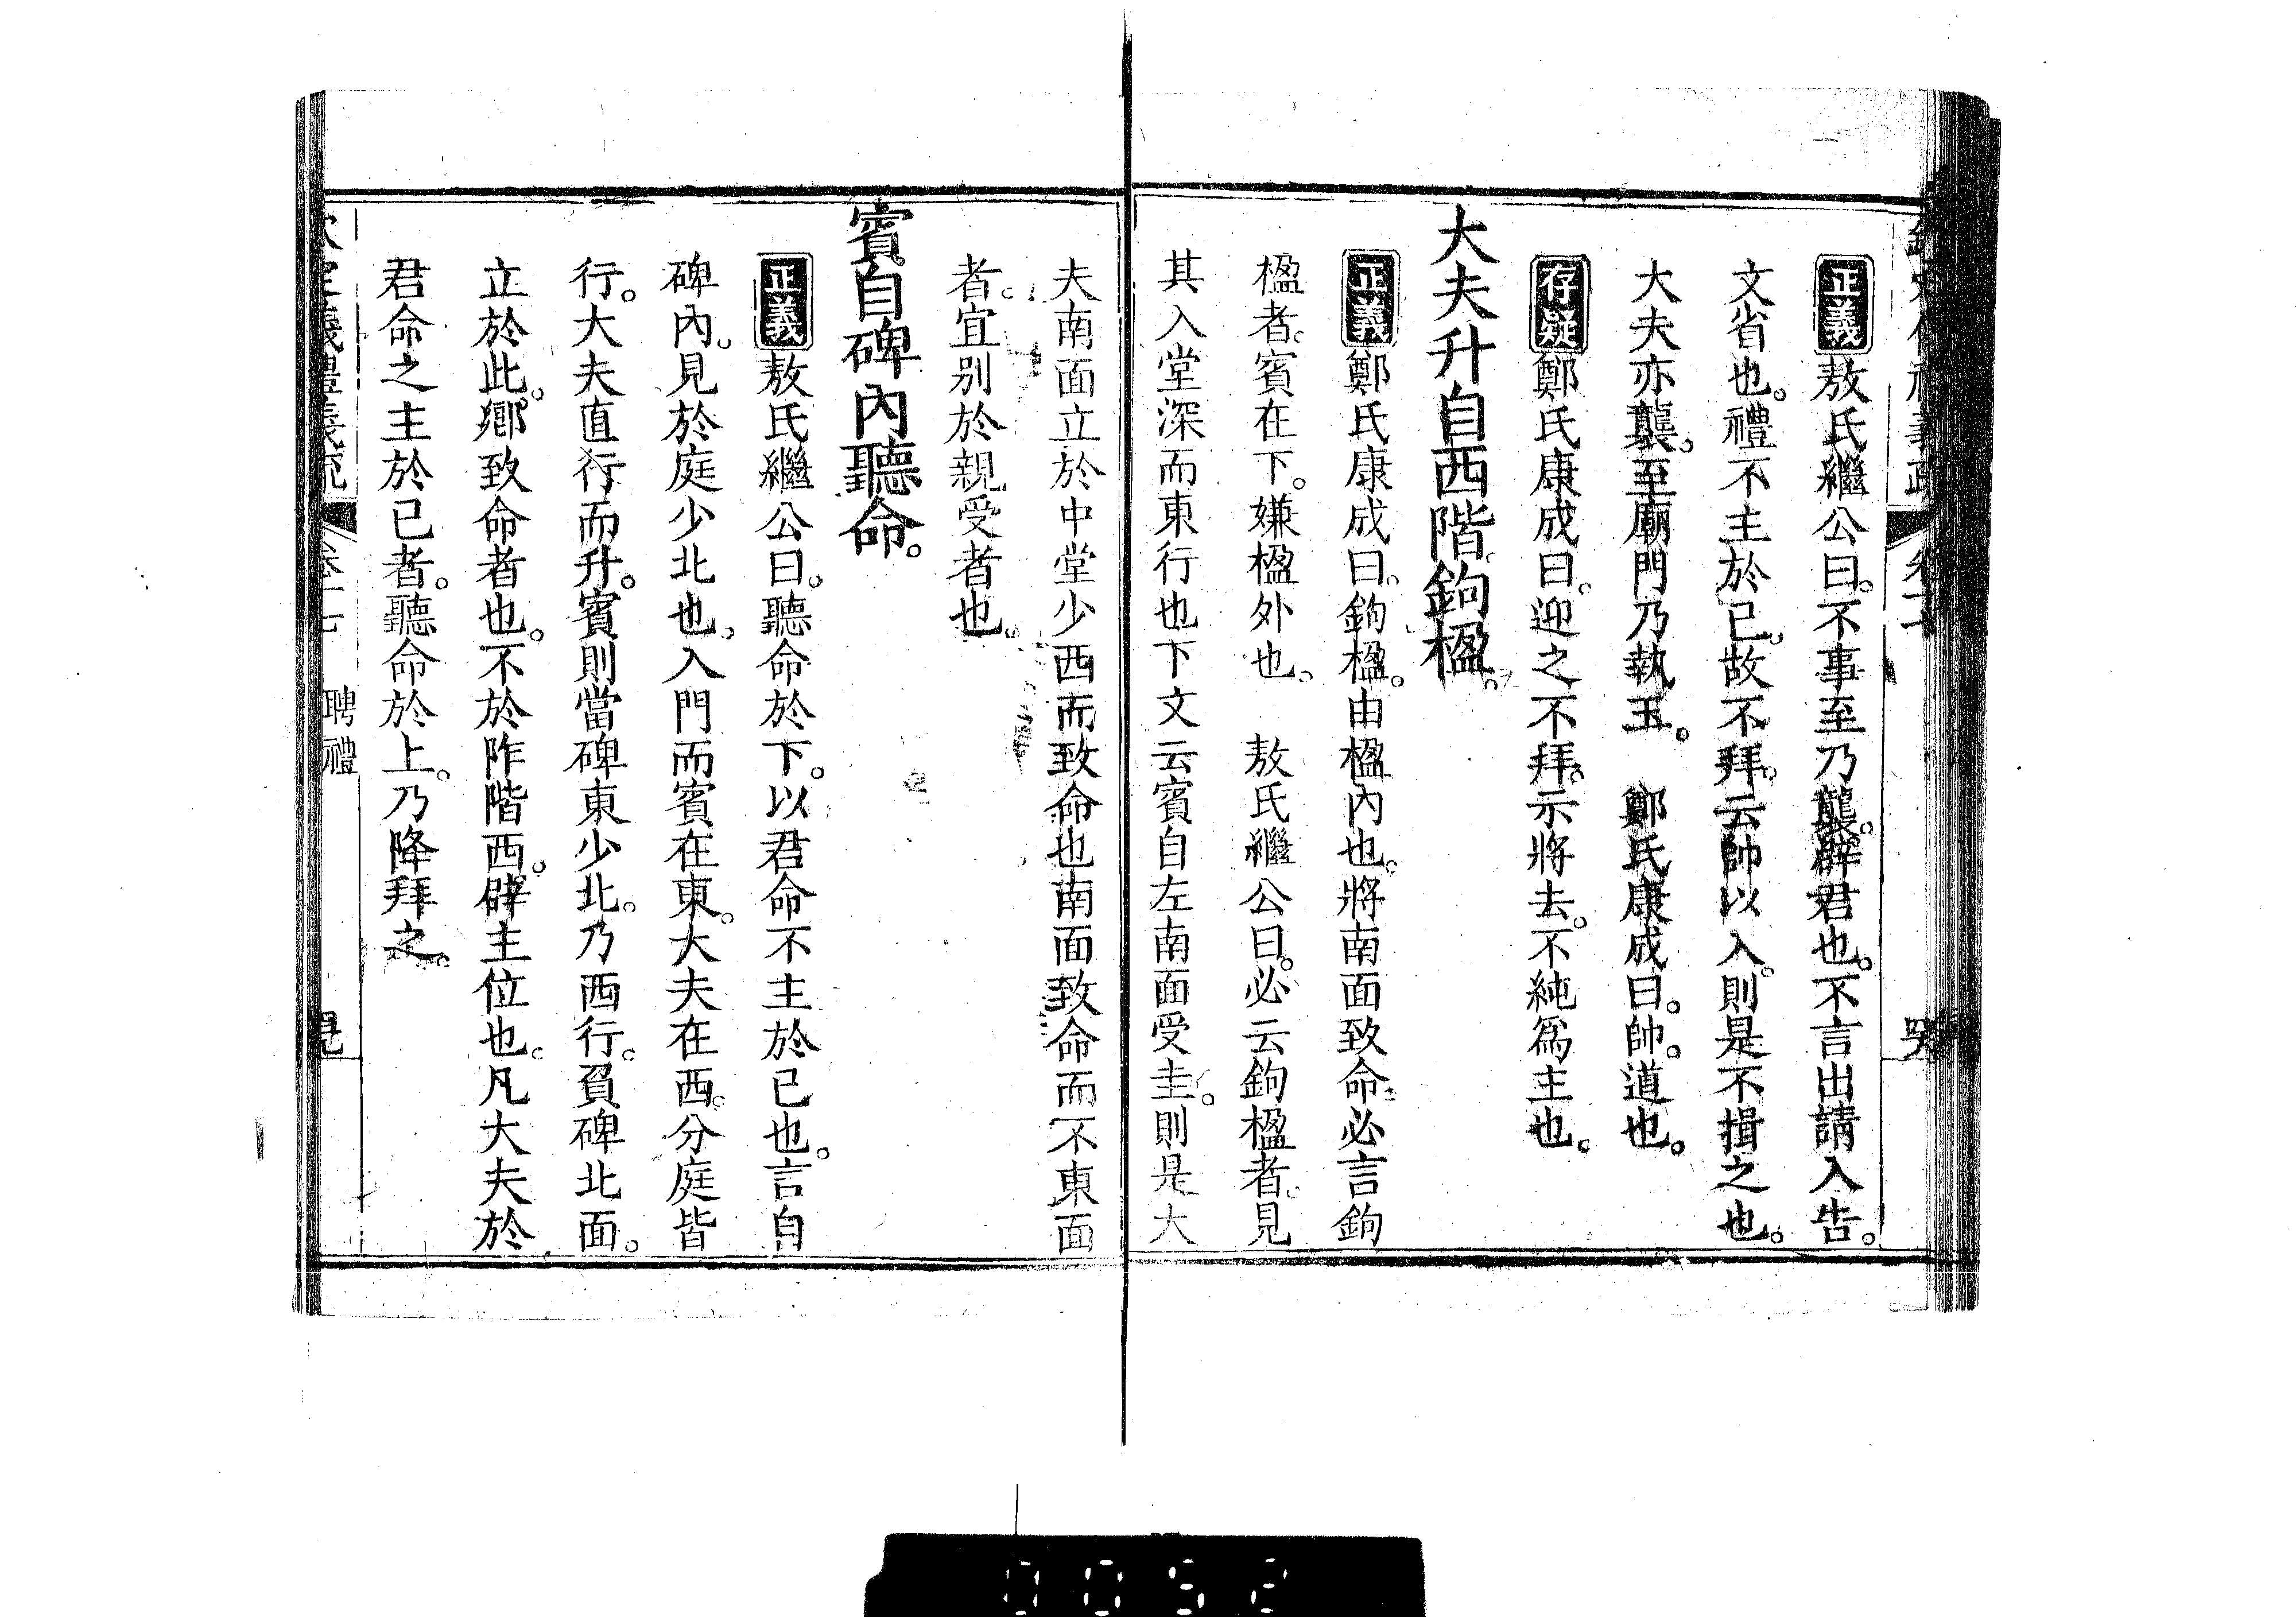 正義敖氏繼公曰。不事至乃襲。辟君也。不言出請入告。
文省也。禮不主於已。故不拜。云帥以入。則是不揖之也。
大夫亦襲。至廟門乃執玉。　鄭氏康成曰。帥。道也。
存疑鄭氏康成曰。迎之不拜。示將去。不純爲主也。
大夫升自西階。鉤楹。
正義鄭氏康成曰。鉤楹。由楹內也。將南面致命。必言鉤
楹者。賓在下。嫌楹外也。　敖氏繼公曰。必云鉤楹者。見
其入堂深而東行也下文云賓自左南面受圭。則是大
夫南面立於中堂少西而致命也南面致命而不東面
者。宜別於親受者也。
賓自碑內聽命。
正義敖氏繼公曰。聽命於下。以君命不主於已也。言自
碑內。見於庭少北也。入門而賓在東。大夫在西。分庭皆
行。大夫直行而升。賓則當碑東少北。乃西行。負碑北面。
立於此。鄉致命者也。不於阼階西。辟主位也。凡大夫於
君命之主於已者。聽命於上。乃降拜之。
聘禮
0052